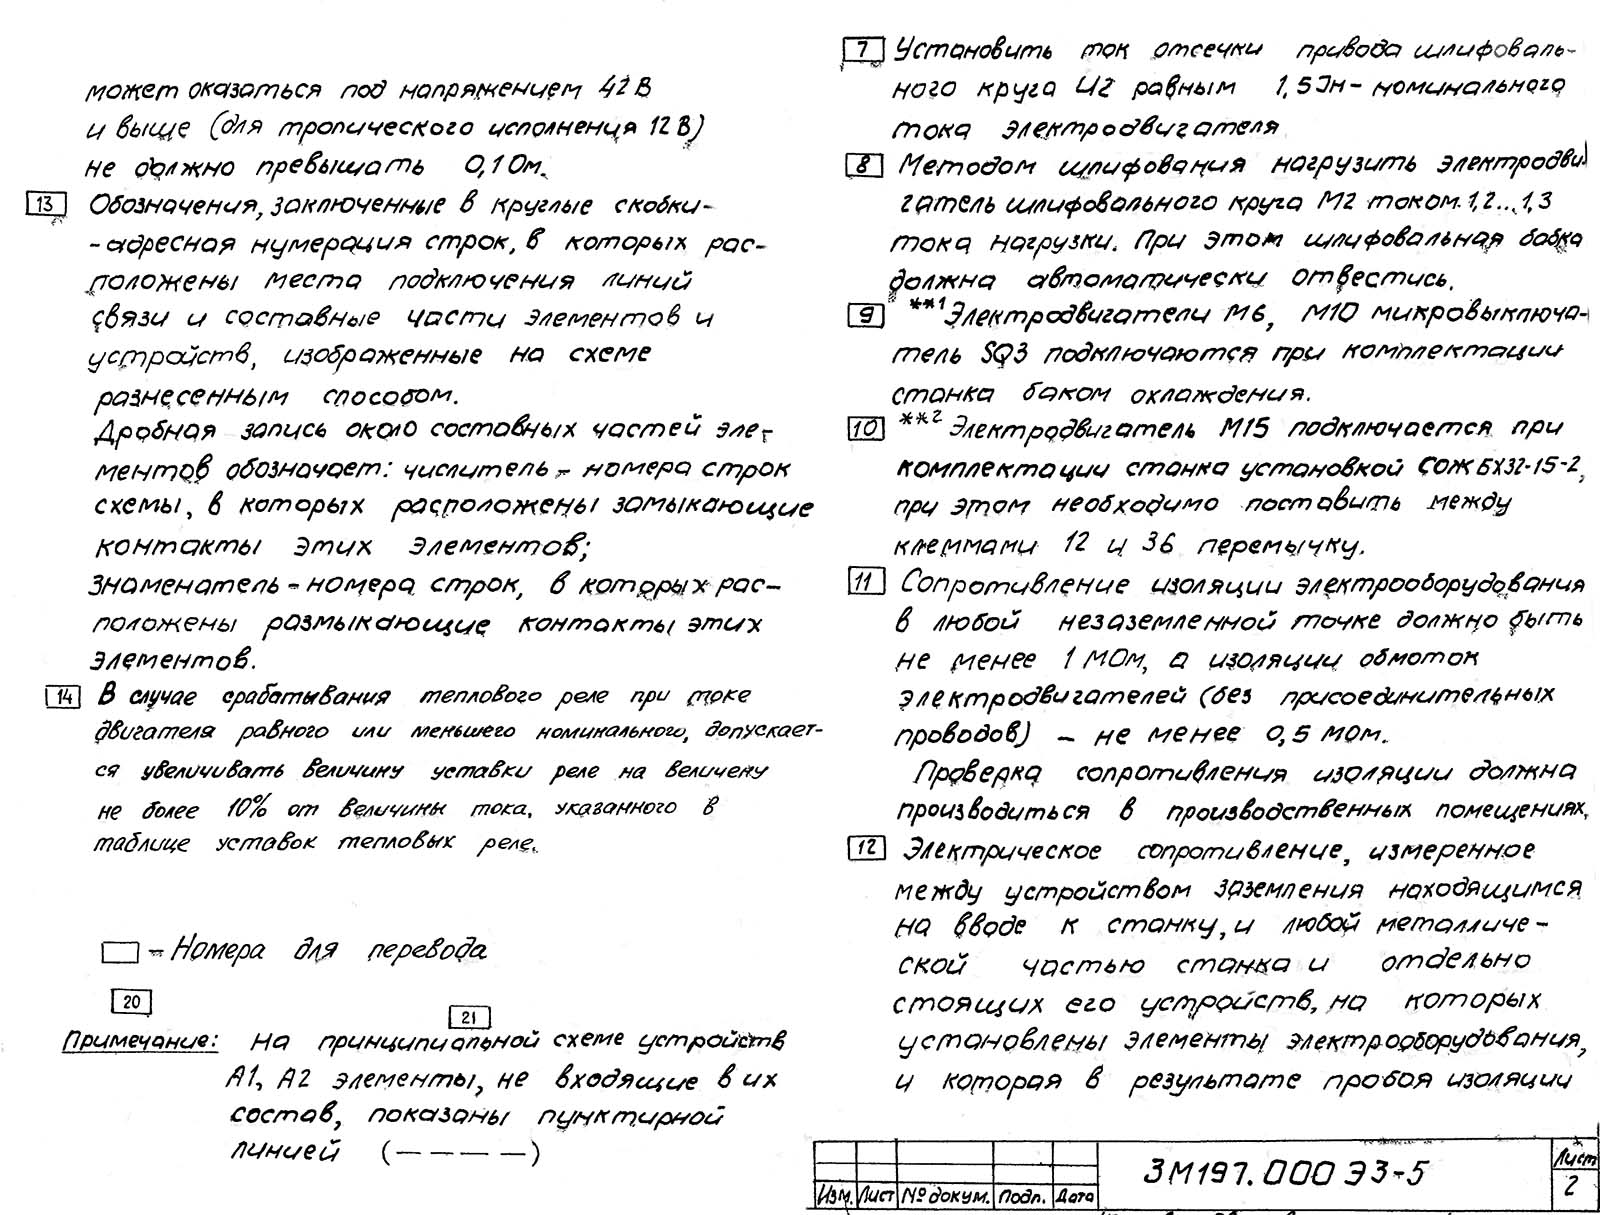 может оказаться под напряжением 42 В
и выше (для тропического исполнения 12 В)
не должно превышать 0,1 Ом.
13 Обозначения, заключенные в круглые скобки-
-адресная нумерация строк, в которых рас-
положены места подключения линий
связи и составные части элементов и
устройств, изображенные на схеме
разнесенным способом.
Дробная запись около составных частей эле-
ментов обозначает: числитель - номера строк
схемы, в которых расположены замыкающие
контакты этих элементов;
знаменатель - номера строк, в которых рас-
положены размыкающие контакты этих
элементов.
14 В случае срабатывания теплового реле при токе
двигателя равного или меньшего номинального, допускает-
ся увеличивать величину уставки реле на величену
не более 10% от величины тока, указанного в
таблице уставок тепловых реле.
– Номера для перевода
20
21
Примечание: На принципиальной схеме устройств
А1, А2 элементы, не входящие в их
состав, показаны пунктирной
линией (– – – –)
7 Установить ток отсечки привода шлифоваль-
ного круга U2 равным 1,5 Iн - номинального
тока электродвигателя
8 Методом шлифования нагрузить электродви
гатель шлифовального круга М2 током 1,2...1,3
тока нагрузки. При этом шлифовальная бабка
должна автоматически отвестись.
9 **1 Электродвигатели М6, М10 микровыключа-
тель SQ3 подключаются при комплектации
станка баком охлаждения.
10 **2 Электродвигатель М15 подключается при
комплектации станка установкой СОЖ БХ32-15-2,
при этом необходимо поставить между
клеммами 12 и 36 перемычку.
11 Сопротивление изоляции электрооборудования
в любой незаземленной точке должно быть
не менее 1 МОм, а изоляции обмоток
электродвигателей (без присоединительных
проводов) – не менее 0,5 мом.
Проверка сопротивления изоляции должна
производиться в производственных помещениях.
12 Электрическое сопротивление, измеренное
между устройством заземления находящимся
на вводе к станку, и любой металличе-
ской частью станка и отдельно
стоящих его устройств, на которых
установлены элементы электрооборудования,
и которая в результате пробоя изоляции
Изм. Лист № докум. Подп. Дата
3М197.000 Э3-5
Лист
2